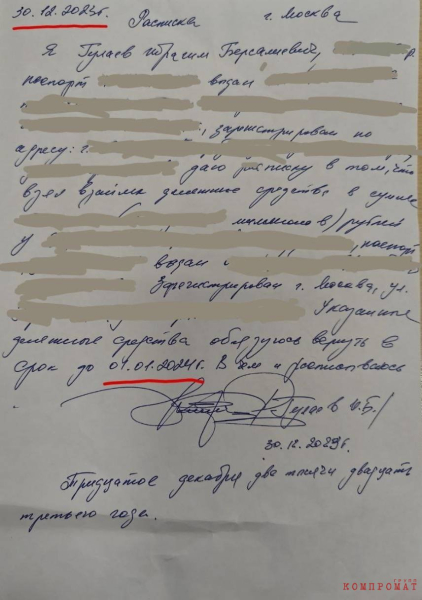 30.12.2023г. Расписка г. Москва
Я Гулаев Ибрагим Берсалиевич,
паспорт выдан
, зарегистрирован по
адресу: г.
даю расписку в том, что
взял взаймы денежные средства в сумме
миллионов) рублей
у , паспорт
выдан
Зарегистрирован г. Москва, ул.
Указанные
денежные средства обязуюсь вернуть в
срок до 01.01.2024г. В чем и расписываюсь
/Гулаев И.Б/
30.12.2023г.
Тридцатое декабря две тысячи двадцать
третьего года.
КОМПРОМАТ